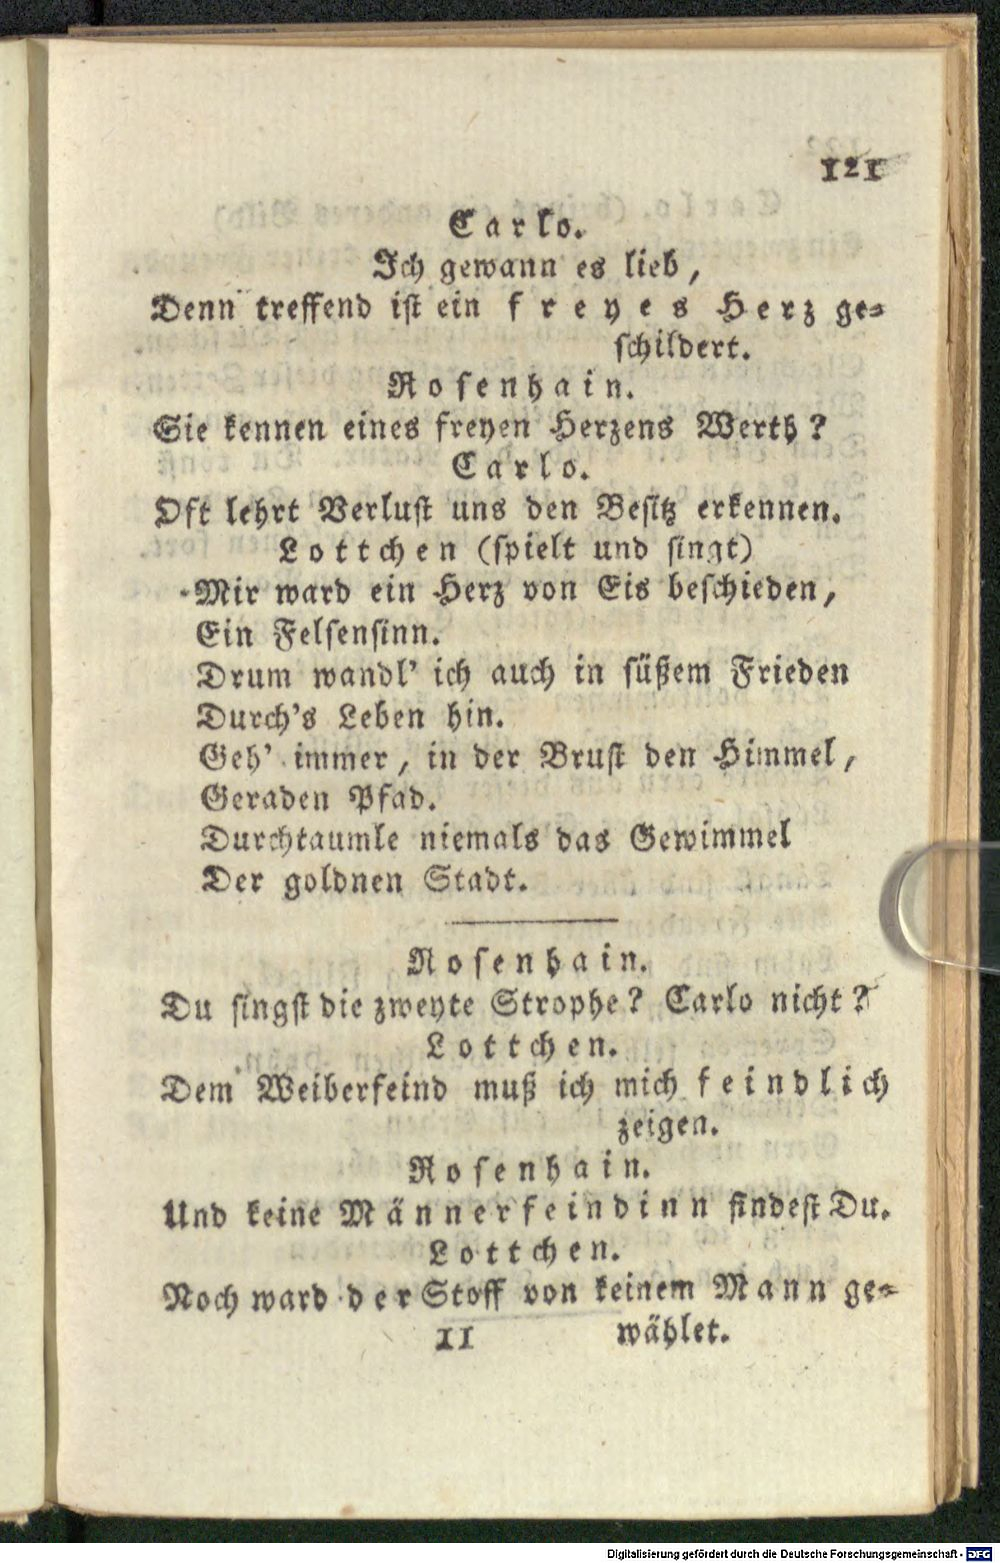 121
Carlo.
Ich gewann es lieb,
Denn treffend ist ein freyes Herz ge-
schildert.
Rosenhain.
Sie kennen eines freyen Herzens Werth?
Carlo.
Oft lehrt Verlust uns den Besitz erkennen.
Lottchen (spielt und singt)
Mir ward ein Herz von Eis beschieden,
Ein Felsensinn.
Drum wandl' ich auch in süßem Frieden
Durch's Leben hin.
Geh' immer, in der Brust den Himmel,
Geraden Pfad.
Durchtaumle niemals das Gewimmel
Der goldnen Stadt.
Rosenhain.
Du singst die zweyte Strophe? Carlo nicht?
Lottchen.
Dem Weiberfeind muß ich mich feindlich
zeigen.
Rosenhain.
Und keine Männerfeindinn findest Du.
Lottchen.
Noch ward der Stoff von keinem Mann ge-
11 wählet.
Digitalisierung gefördert durch die Deutsche Forschungsgemeinschaft - DFG